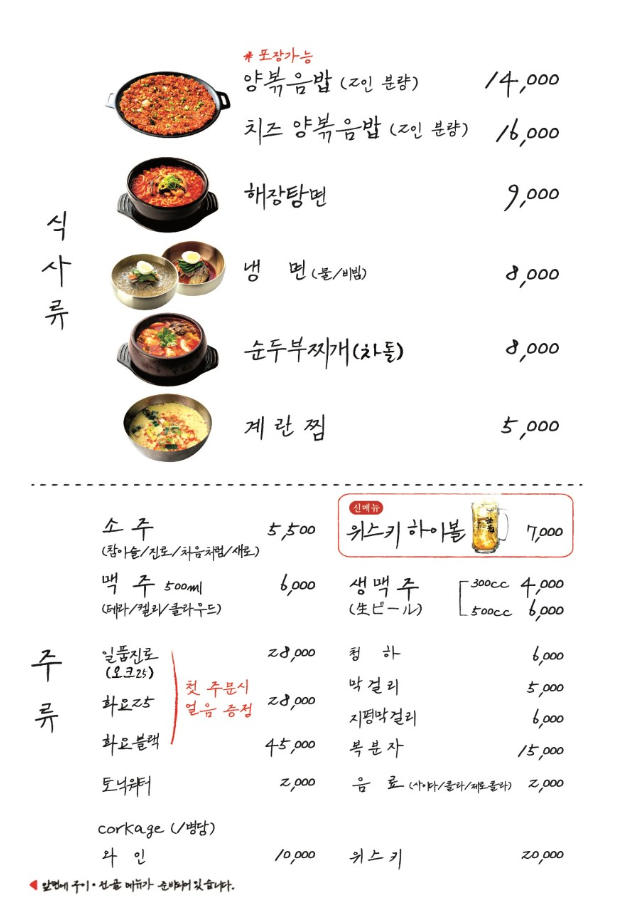 * 포장가능
양볶음밥 (2인 분량) 14,000
치즈 양볶음밥 (2인 분량) 16,000
해장탕면 9,000
식사류
냉 면 (물/비빔) 8,000
순두부찌개(차돌) 8,000
계란찜 5,000
소 주 5,500
(참이슬/진로/처음처럼/새로)
맥 주 500ml 6,000
(테라/켈리/클라우드)
주류
일품진로 28,000
(오크25)
화요25 28,000
화요블랙 45,000
첫 주문시
얼음 증정
토닉워터 2,000
corkage (1병당)
와 인 10,000
신메뉴
위스키 하이볼 7,000
생맥주 300cc 4,000
(生ビール) 500cc 6,000
청 하 6,000
막걸리 5,000
지평막걸리 6,000
복분자 15,000
음 료 (사이다/콜라/제로콜라) 2,000
위스키 20,000
◀ 앞면에 구이·전골 메뉴가 준비되어 있습니다.